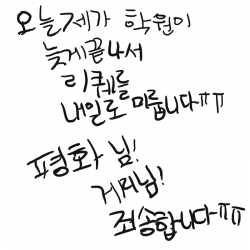 오늘 제가 학원이
늦게끝나서
리퀘를
내일로 미룹니다ㅠㅠ
평화 님!
게리님!
죄송합니다ㅠㅠ